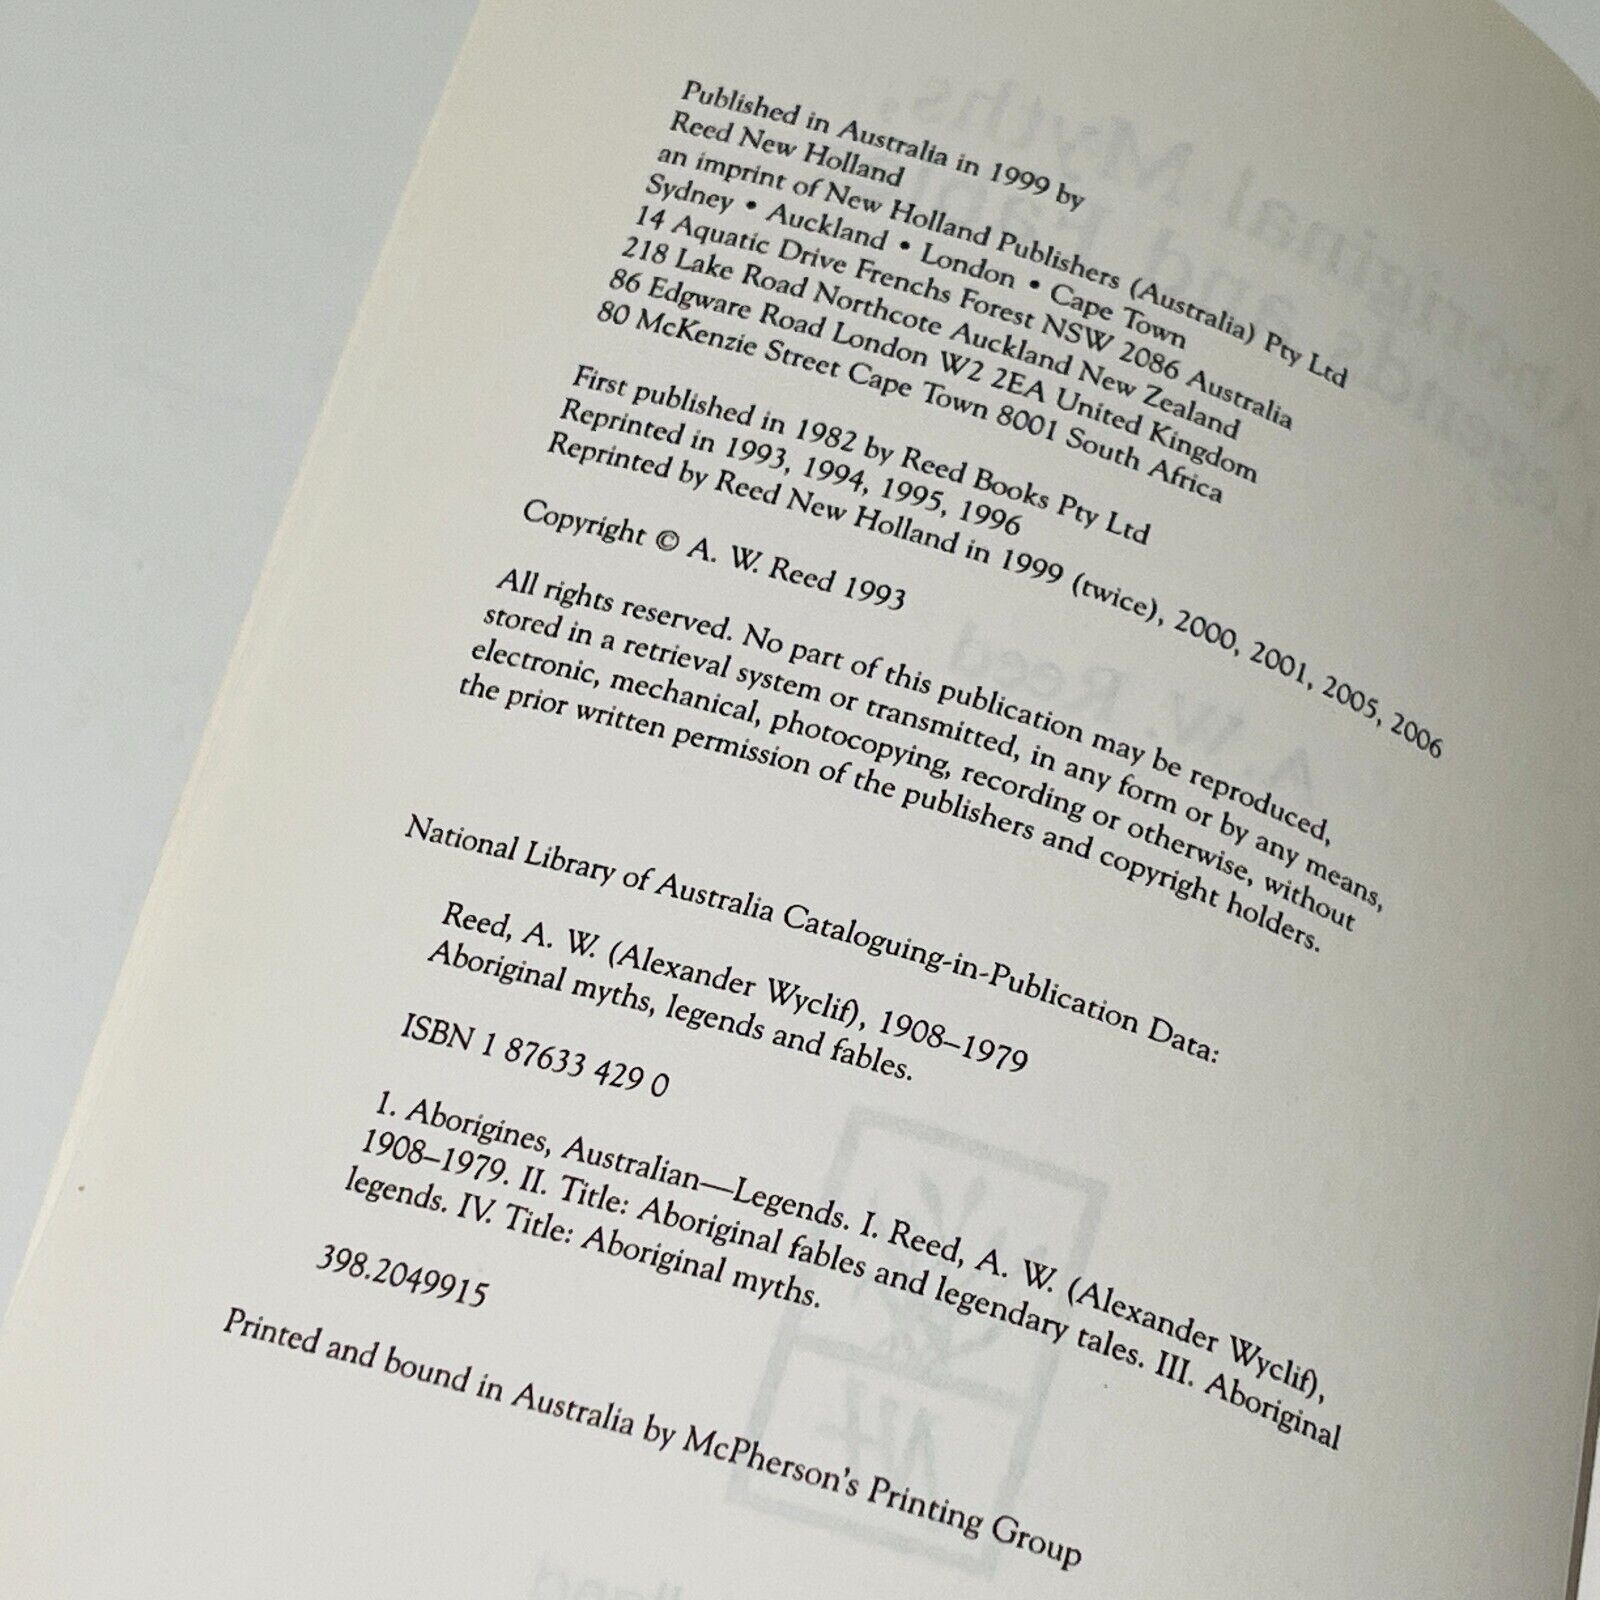 Published in Australia in 1999 by
Reed New Holland
an imprint of New Holland Publishers (Australia) Pty Ltd
Sydney • Auckland • London • Cape Town
14 Aquatic Drive Frenchs Forest NSW 2086 Australia
218 Lake Road Northcote Auckland New Zealand
86 Edgware Road London W2 2EA United Kingdom
80 McKenzie Street Cape Town 8001 South Africa
First published in 1982 by Reed Books Pty Ltd
Reprinted in 1993, 1994, 1995, 1996
Reprinted by Reed New Holland in 1999 (twice), 2000, 2001, 2005, 2006
Copyright © A. W. Reed 1993
All rights reserved. No part of this publication may be reproduced,
stored in a retrieval system or transmitted, in any form or by any means,
electronic, mechanical, photocopying, recording or otherwise, without
the prior written permission of the publishers and copyright holders.
National Library of Australia Cataloguing-in-Publication Data:
Reed, A. W. (Alexander Wyclif), 1908–1979
Aboriginal myths, legends and fables.
ISBN 1 87633 429 0
1. Aborigines, Australian—Legends. I. Reed, A. W. (Alexander Wyclif),
1908–1979. II. Title: Aboriginal fables and legendary tales. III. Aboriginal
legends. IV. Title: Aboriginal myths.
398.2049915
Printed and bound in Australia by McPherson's Printing Group